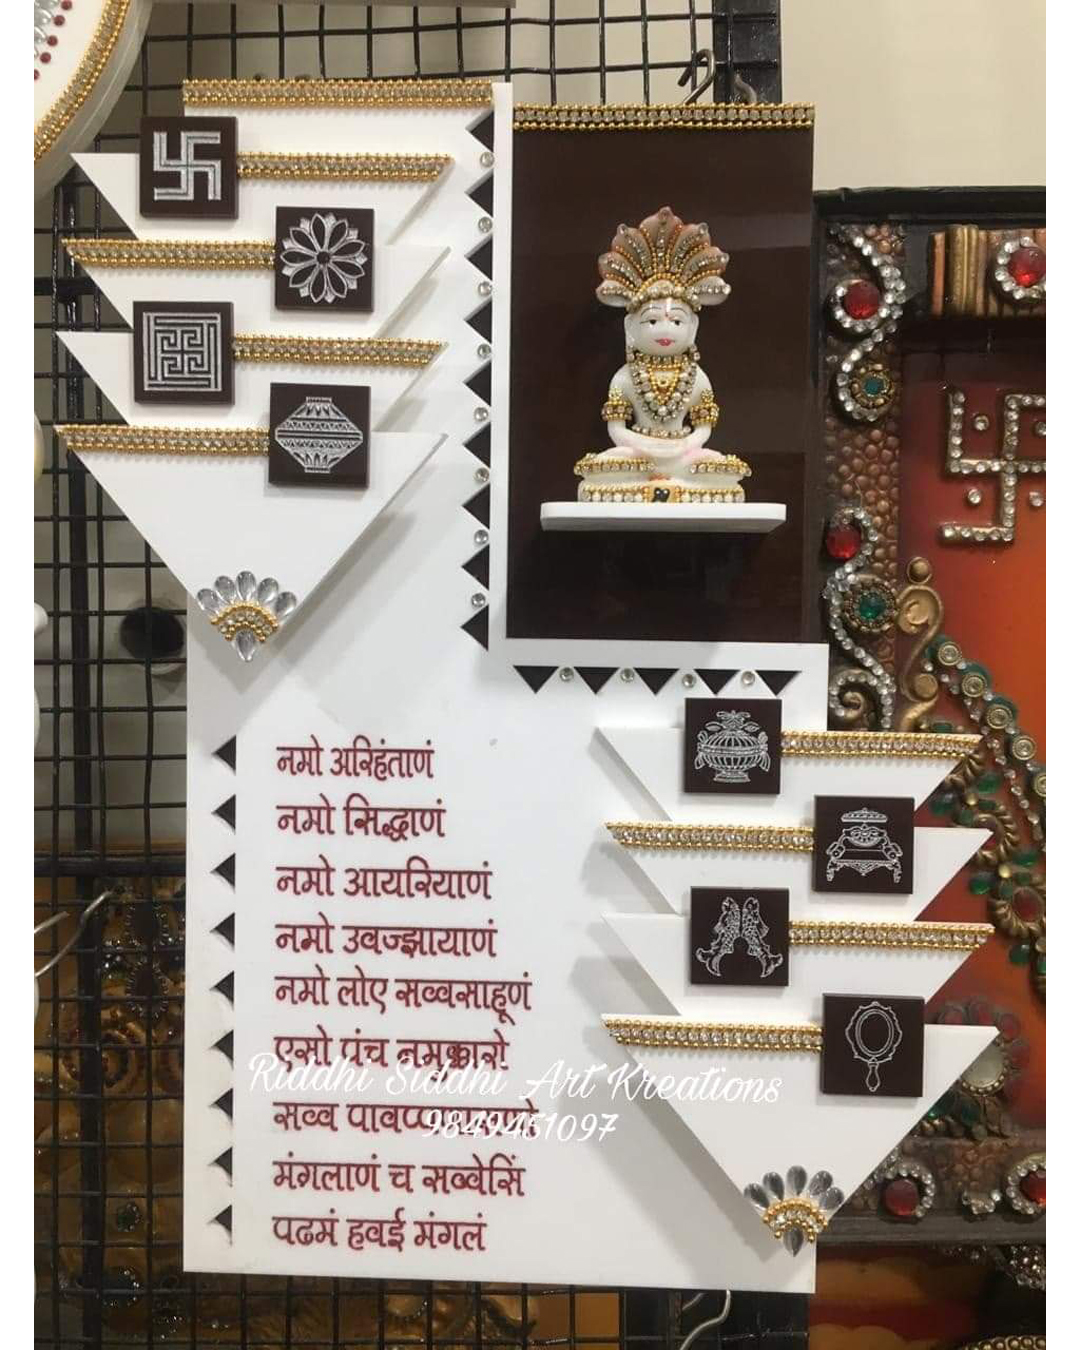 नमो अरिहंताणं
नमो सिद्धाणं
नमो आयरियाणं
नमो उवज्झायाणं
नमो लोए सव्वसाहूणं
एसो पंच नमक्कारो
Riddhi Siddhi Art Kreations
सव्व
9849451097
मंगलाणं च सव्वेसिं
पढमं हवई मंगलं